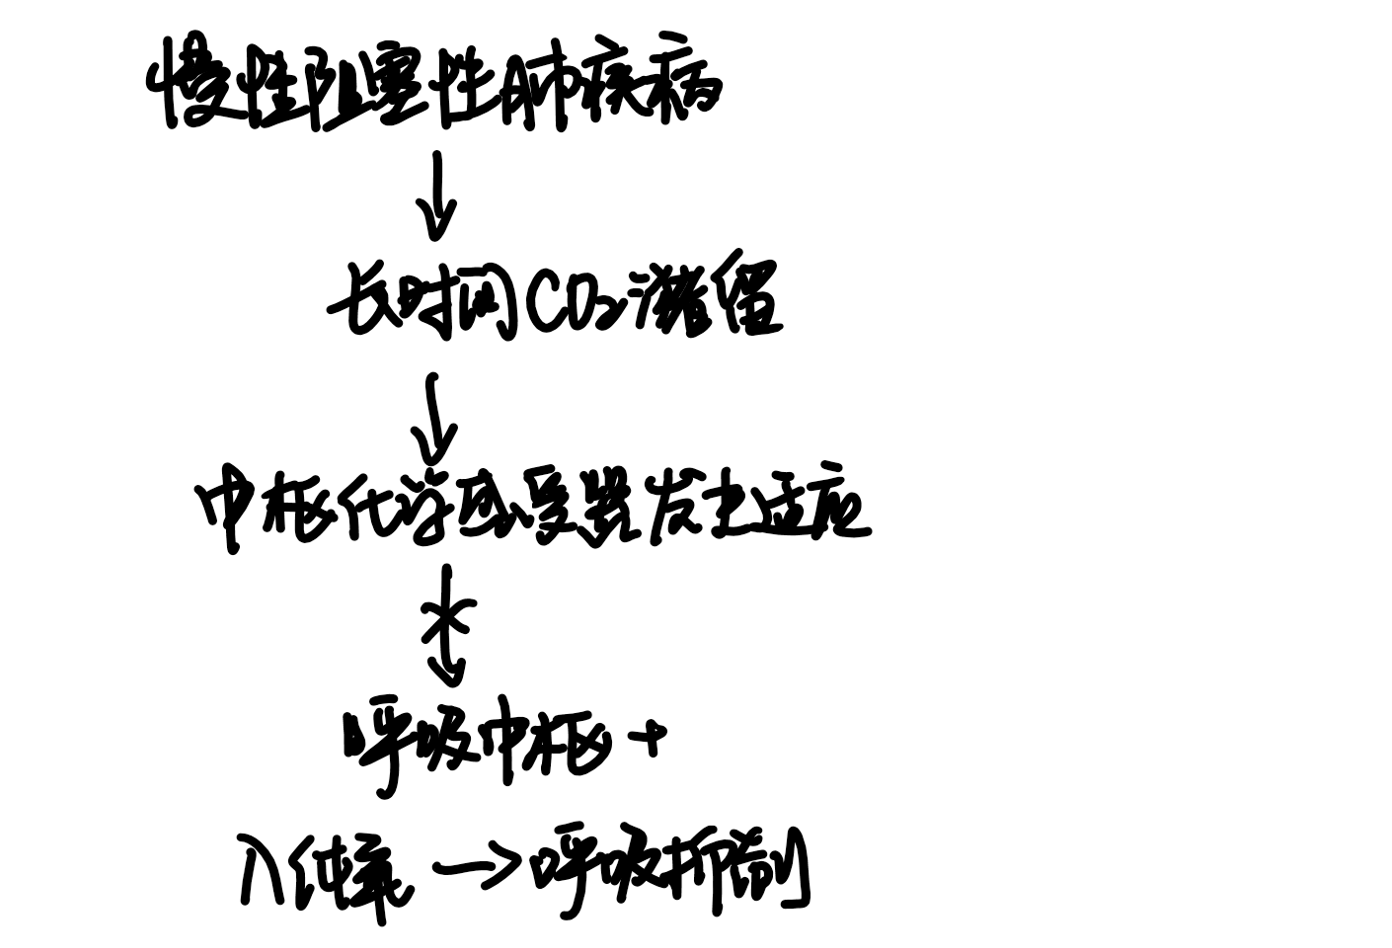 慢性阻塞性肺疾病
↓
长时间CO2潴留
↓
中枢化学感受器发生适应
呼吸中枢+
入纯氧→呼吸抑制